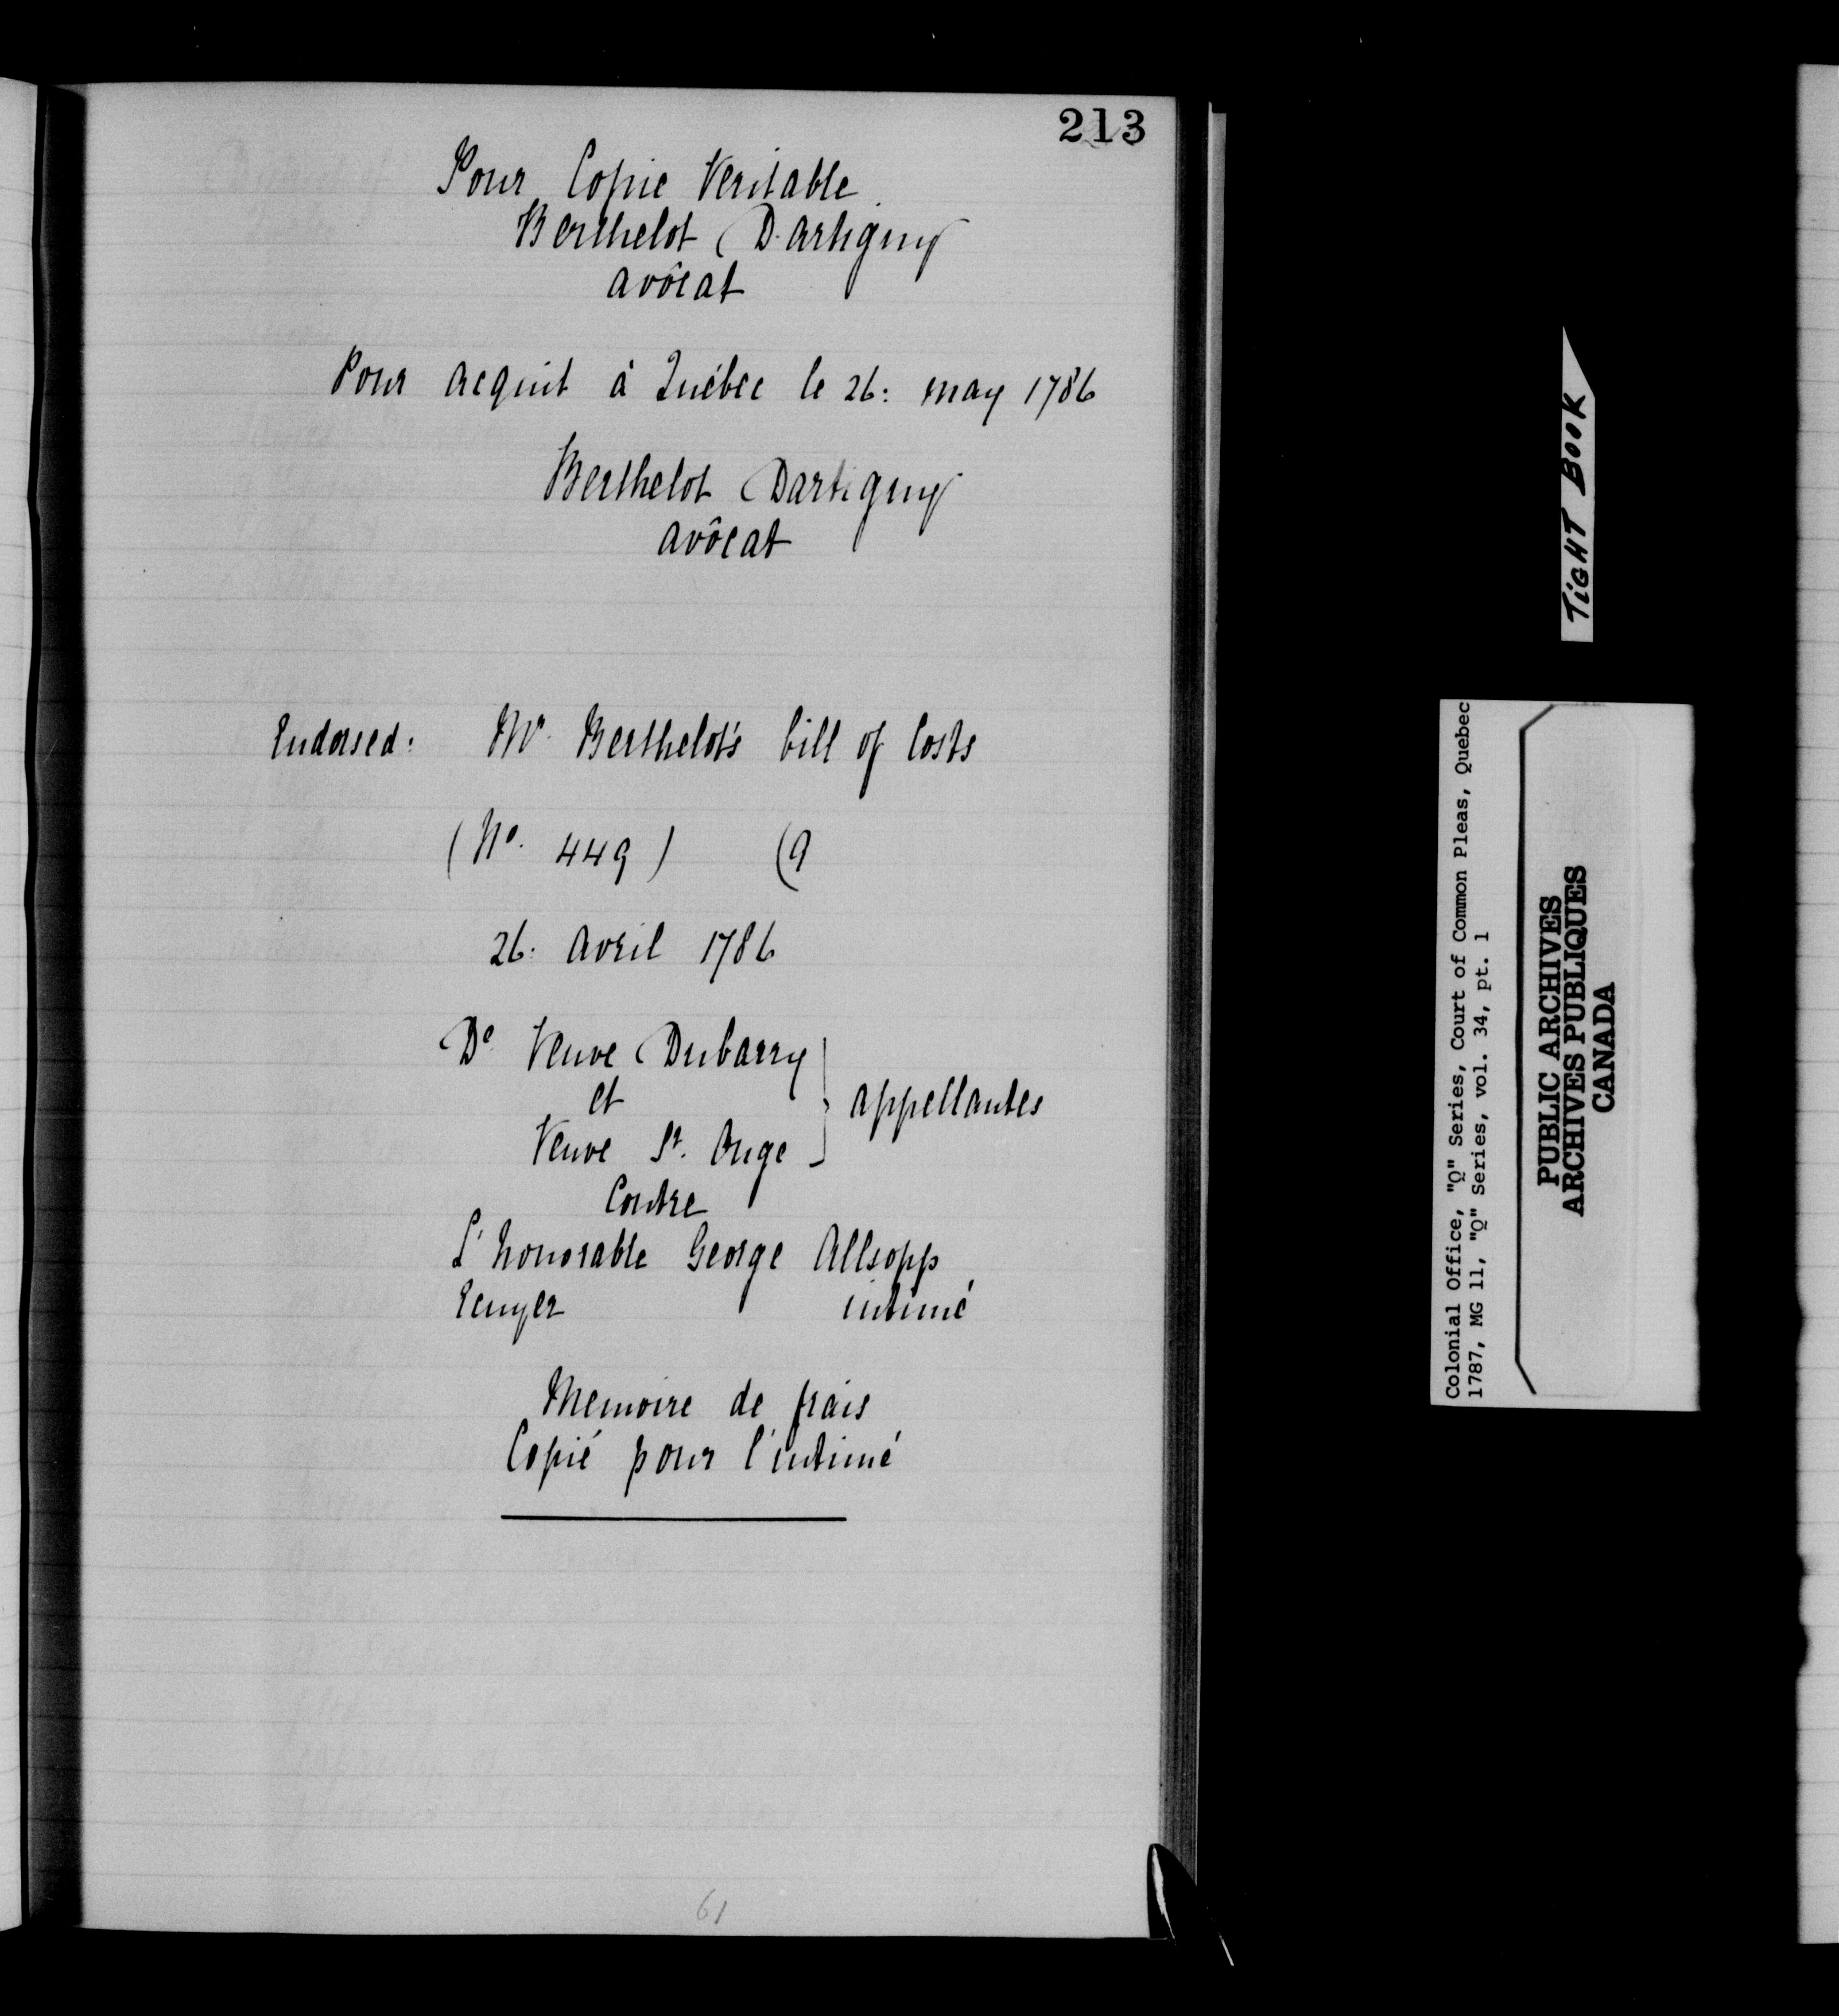 213
Pour Copie Veritable
Berthelot D. artigny
avôcat
Pour acquit à Québec le 26: may 1786
Berthelot Dartigny
avôcat
Endorsed: Mr. Berthelot's bill of Costs
(No. 449) (9
26: avril 1786
De Veuve Dubarry
et
Veuve St. Ange
appellantes
Contre
L'honorable George Allsopp
Ecuyer intimé
Memoire de frais
Copié pour l'intimé
61
TiGHT BOOK
Colonial Office, "Q" Series, Court of Common Pleas, Quebec
1787, MG 11, "Q" Series, vol. 34, pt. 1
PUBLIC ARCHIVES
ARCHIVES PUBLIQUES
CANADA